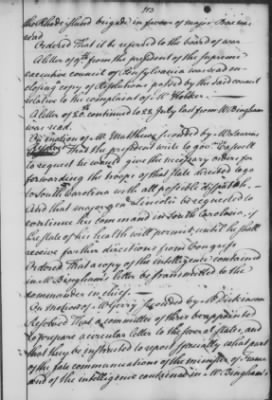 the Rhode island brigade in favour of major Box was
read
Ordered That it be referred to the board of war
A letter of 9th from the president of the supreme
executive council of Pensylvania was read in-
closing copy of Resolutions passed by the said council
relative to the complaint of Mr Holker
A letter of 20. continued to 22 July last from W Bingham
was read.
On motion of Mr Matthews, seconded by Mr
Resolved That the president write to govr Caswell
to request he would give the necessary orders for
forwarding the troops of that state destined to go
to South Carolina with all possible dispatch.
And that major gen Lincoln be requested to
continue his command in South Carolina, if
the state of his health will permit, until he shall
receive farther directions from Congress
Ordered That a copy of the intelligence contained
in Mr Bingham's letter be transmitted to the
commander in chief
On motion of Mr Gerry, seconded by Mr Dickinson
Resolved That a committee of three be appointed
to prepare a circular letter to the several states, and
that they be instructed to report specially what part
of the late communications of the minister of France
and of the intelligence contained in Mr Bingham's